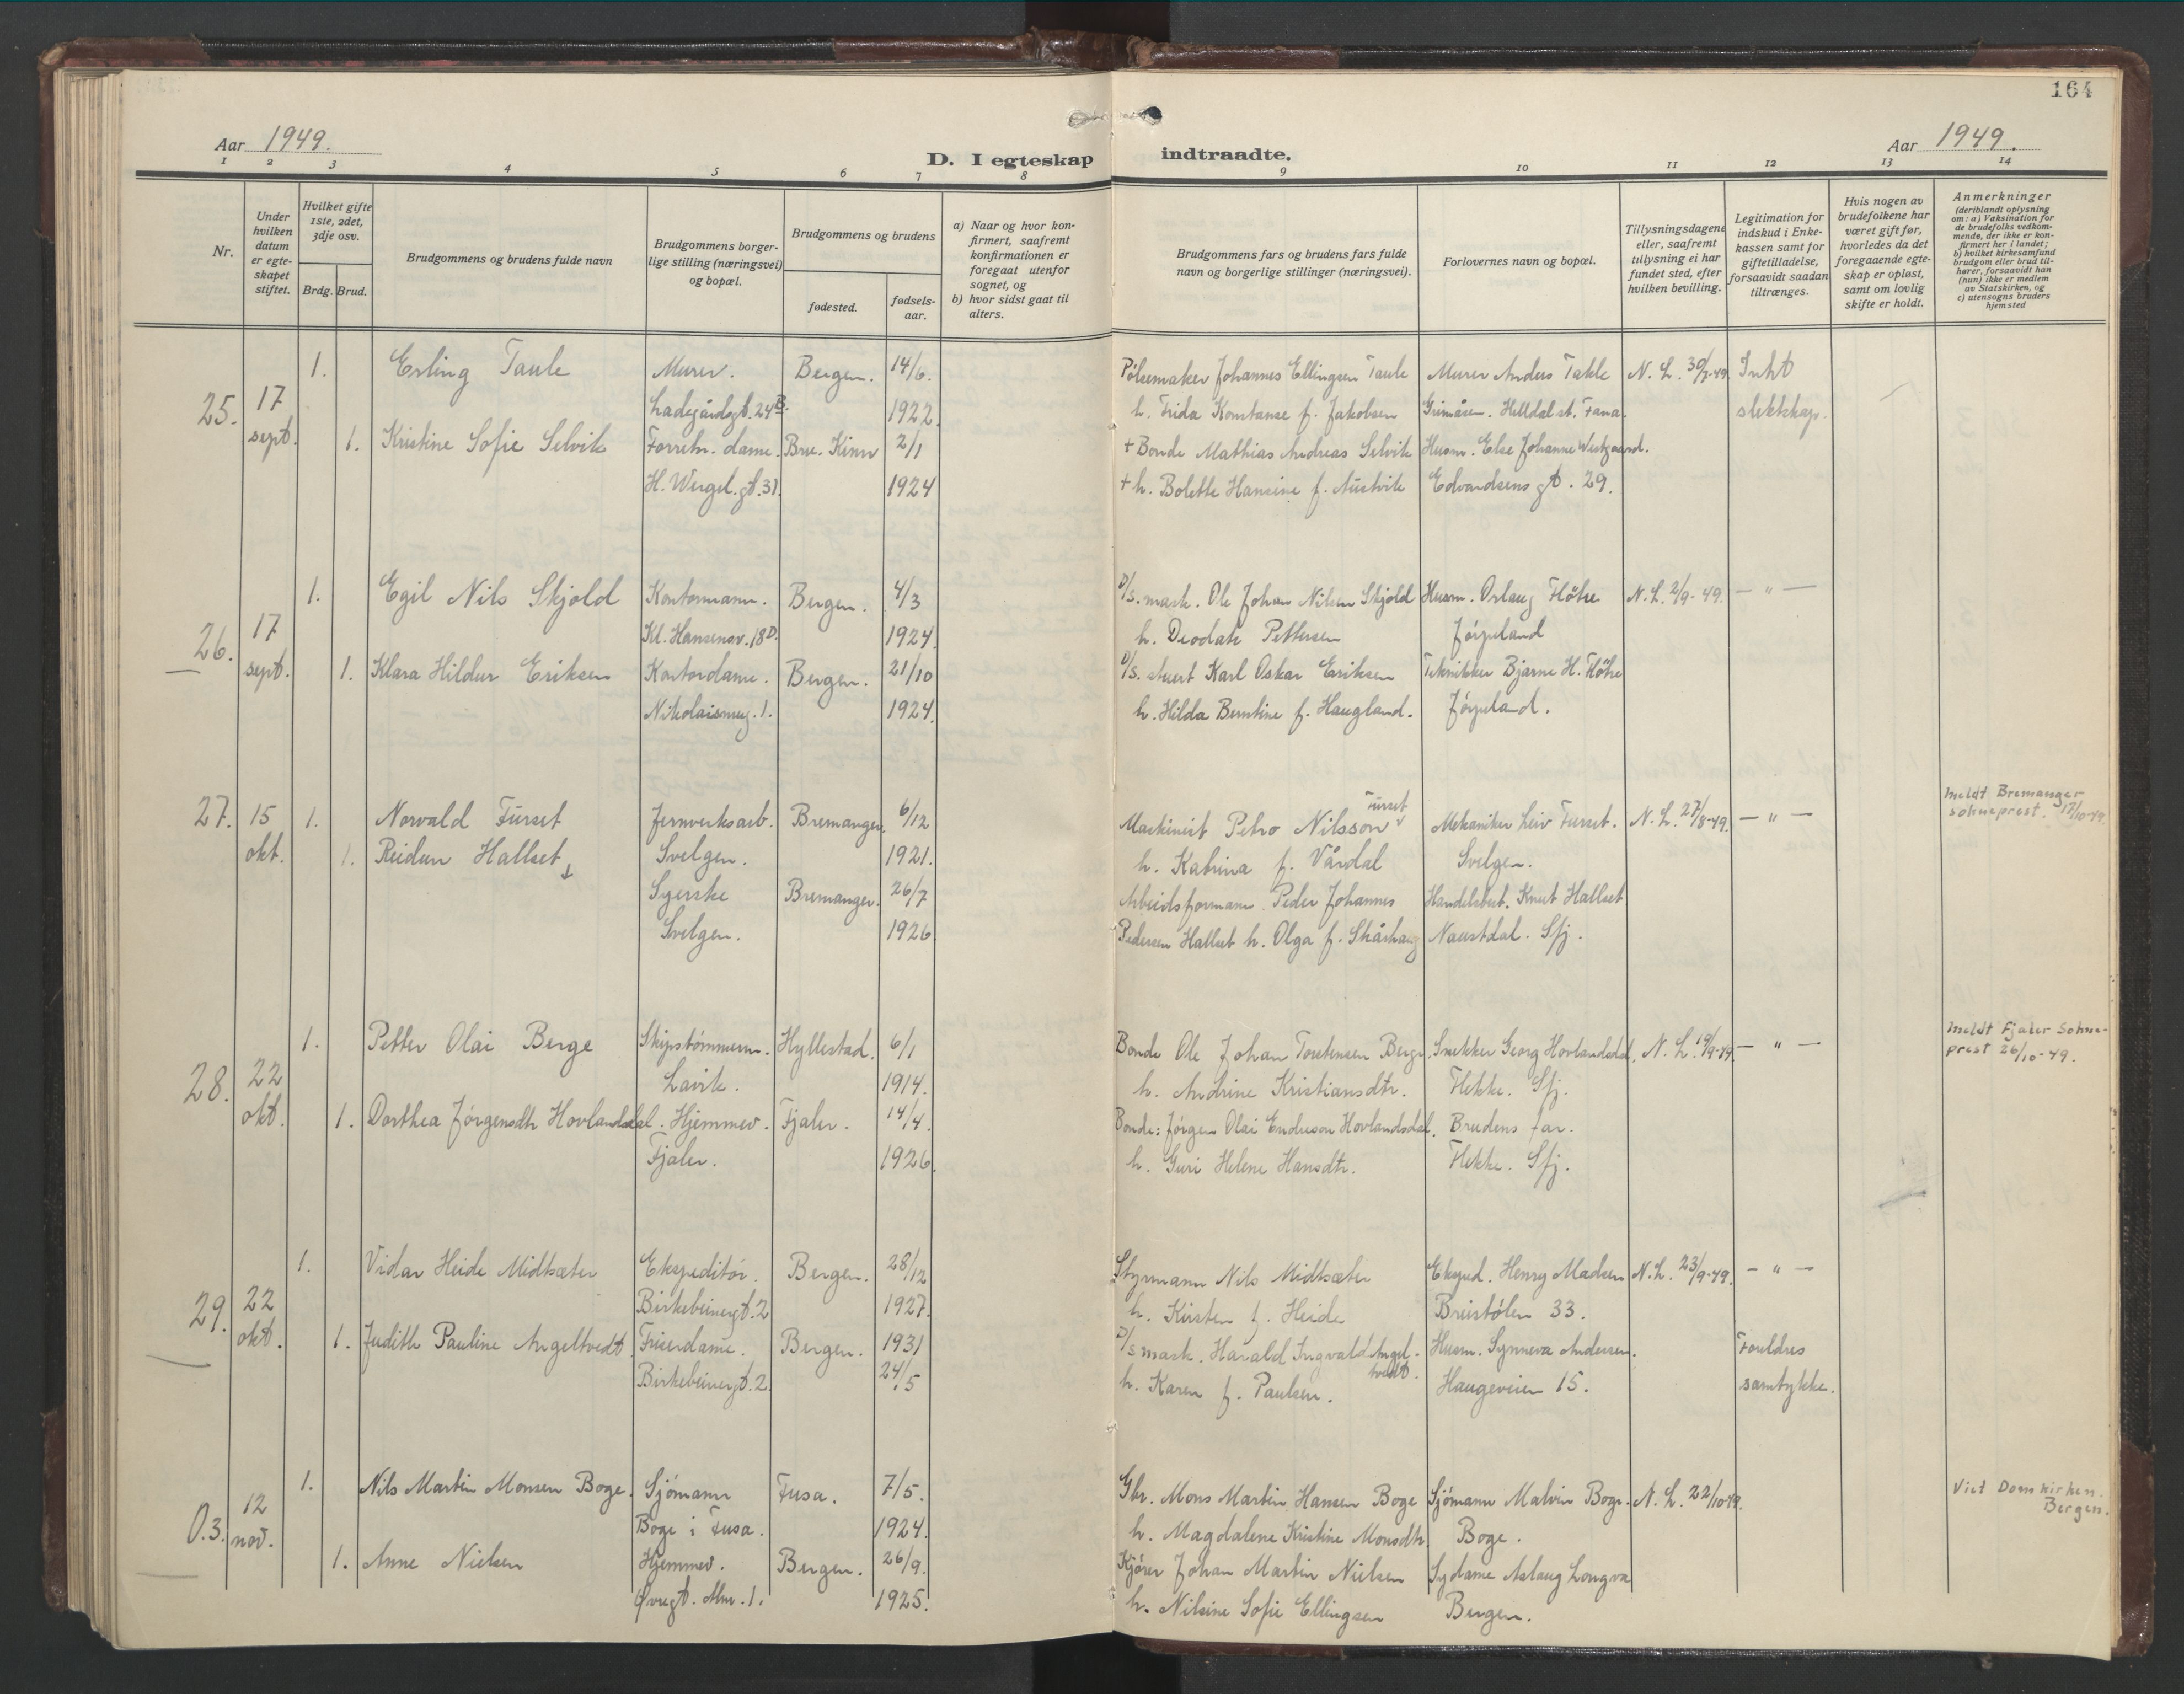 164
Aar 1949.
D. I egteskap indtraadte.
Aar 1949.
1 2 3 4 5 6 7 8 9 10 11 12 13 14
Nr.
Under hvilken datum er egte-skapet stiftet.
Hvilket gifte 1ste, 2det, 3dje osv.
Brdg. Brud.
Brudgommens og brudens fulde navn
Brudgommens borger-lige stilling (næringsvei) og bopæl.
Brudgommens og brudens
fødested.
fødsels-aar.
a) Naar og hvor kon-firmert, saafremt konfirmationen er foregaat utenfor sognet, og
b) hvor sidst gaat til alters.
Brudgommens fars og brudens fars fulde navn og borgerlige stillinger (næringsvei).
Forlovernes navn og bopæl.
Tillysningsdagene eller, saafremt tillysning ei har fundet sted, efter hvilken bevilling.
Legitimation for indskud i Enke-kassen samt for giftetilladelse, forsaavidt saadan tiltrænges.
Hvis nogen av brudefolkene har været gift før, hvorledes da det foregaaende egte-skap er opløst, samt om lovlig skifte er holdt.
Anmerkninger
(deriblandt oplysning om: a) Vaksination for de brudefolks vedkom-mende, der ikke er kon-firmert her i landet; b) hvilket kirkesamfund brudgom eller brud til-hører, forsaavidt han (hun) ikke er medlem av Statskirken, og c) utensogns bruders hjemsted
1. Erling Taule Murer. Bergen. 14/6. Pølsemaker Johannes Ellingsen Taule Murer Anders Takle N. L. 30/7-49. Inht
25. 17 Ladegårdsgt. 24B. 1922. h. Frida Konstanse f. Jakobsen Grimåsen. Helldal st. Fana. slektskap.
sept. 1. Kristine Sofie Selvik Forretn. dame. Bru. Kinn 2/1 + Bonde Mathias Andreas Selvik Husm. Else Johanne Westgaard.
H. Wergel. gt. 31. 1924 + h. Bolette Hansine f. Austvik Edvardsens gt. 29.
1. Egil Nils Skjold Kontormann. Bergen. 4/3 D/s. mask. Ole Johan Nilsen Skjold Husm. Orlaug Fløtre N. L. 2/9-49. — " —
26. 17 Kl. Hansensv. 18D. 1924. h. Deodate Pettersen Jørpeland
sept. 1. Klara Hildur Eriksen Kontordame. Bergen. 21/10 D/s. stuert Karl Oskar Eriksen Tekniker Bjarne H. Fløtre
Nikolaismug. 1. 1924. h. Hilda Berntine f. Haugland. Jørpeland.
Meldt Bremanger
sokneprest. 17/10-49.
Furset
27. 15 1. Norvald Furset Jernverksarb. Bremanger. 6/12 Maskinist Petro Nilsson Mekaniker Leiv Furset. N. L. 27/8-49. — " —
okt. 1. Reidun Hallset Svelgen. 1921. h. Katrina f. Vårdal Svelgen.
Syerske Bremanger. 26/7 Arbeidsformann Peder Johannes Handelsbest. Knut Hallset
Svelgen. 1926 Pedersen Hallset h. Olga f. Skårhaug Naustdal. Sfj.
1. Petter Olai Berge Skipstømmerm. Hyllestad. 6/1 Bonde Ole Johan Torstensen Berge. Snekker Georg Hovlandsdal. N. L. 19/9-49. — " — Meldt Fjaler Sokne-
prest 26/10-49.
28. 22 Lavik. 1914. h. Andrine Kristiansdtr. Flekke. Sfj.
okt. 1. Dorthea Jørgensdtr Hovlandsdal. Hjemmev. Fjaler. 14/4 Bonde: Jørgen Olai Endreson Hovlandsdal. Brudens far.
Fjaler. 1926. h. Guri Helene Hansdtr. Flekke. Sfj.
1. Vidar Heide Midtsæter Ekspeditør. Bergen. 28/12 Styrmann Nils Midtsæter Eksped. Henry Madsen N. L. 23/9-49. — " —
29. 22 Birkebeinergt. 2 1927. h. Kirsten f. Heide Breistølen 33.
okt. 1. Judith Pauline Angeltvedt. Frisérdame. Bergen. 1931 D/s mask. Harald Ingvald Angel- Husm. Synneva Andersen. Foreldres
tvedt.
Birkebeinergt. 2. 24/5 h. Karen f. Paulsen. Haugeveien 15. samtykke.
1. Nils Martin Monsen Boge. Sjømann Fusa. 7/5. Gbr. Mons Martin Hansen Boge Sjømann Malvin Boge. N. L. 22/10-49. Viet Domkirken.
Bergen.
O.3. 12 Boge i Fusa. 1924. h. Magdalene Kristine Monsdtr. Boge.
nov. 1. Anne Nielsen Hjemmev. Bergen. 26/9. Kjører Johan Martin Nielsen Sydame Aslaug Longva
Øvregt. Alm. 1. 1925. h. Nilsine Sofie Ellingsen Bergen.